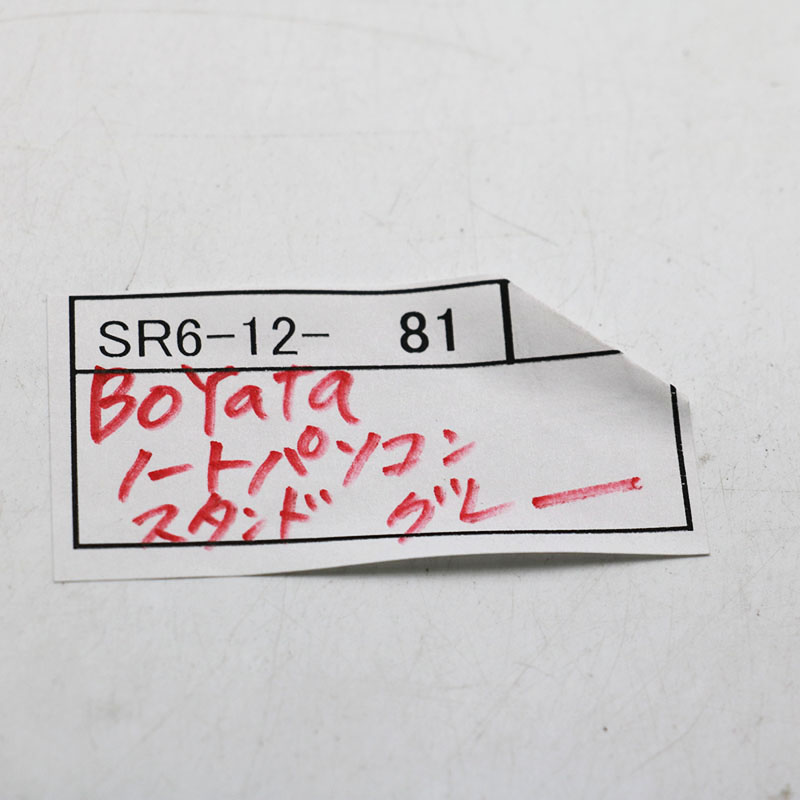 SR6-12- 81
BoYaTa
ノートパソコン
スタンド グレー